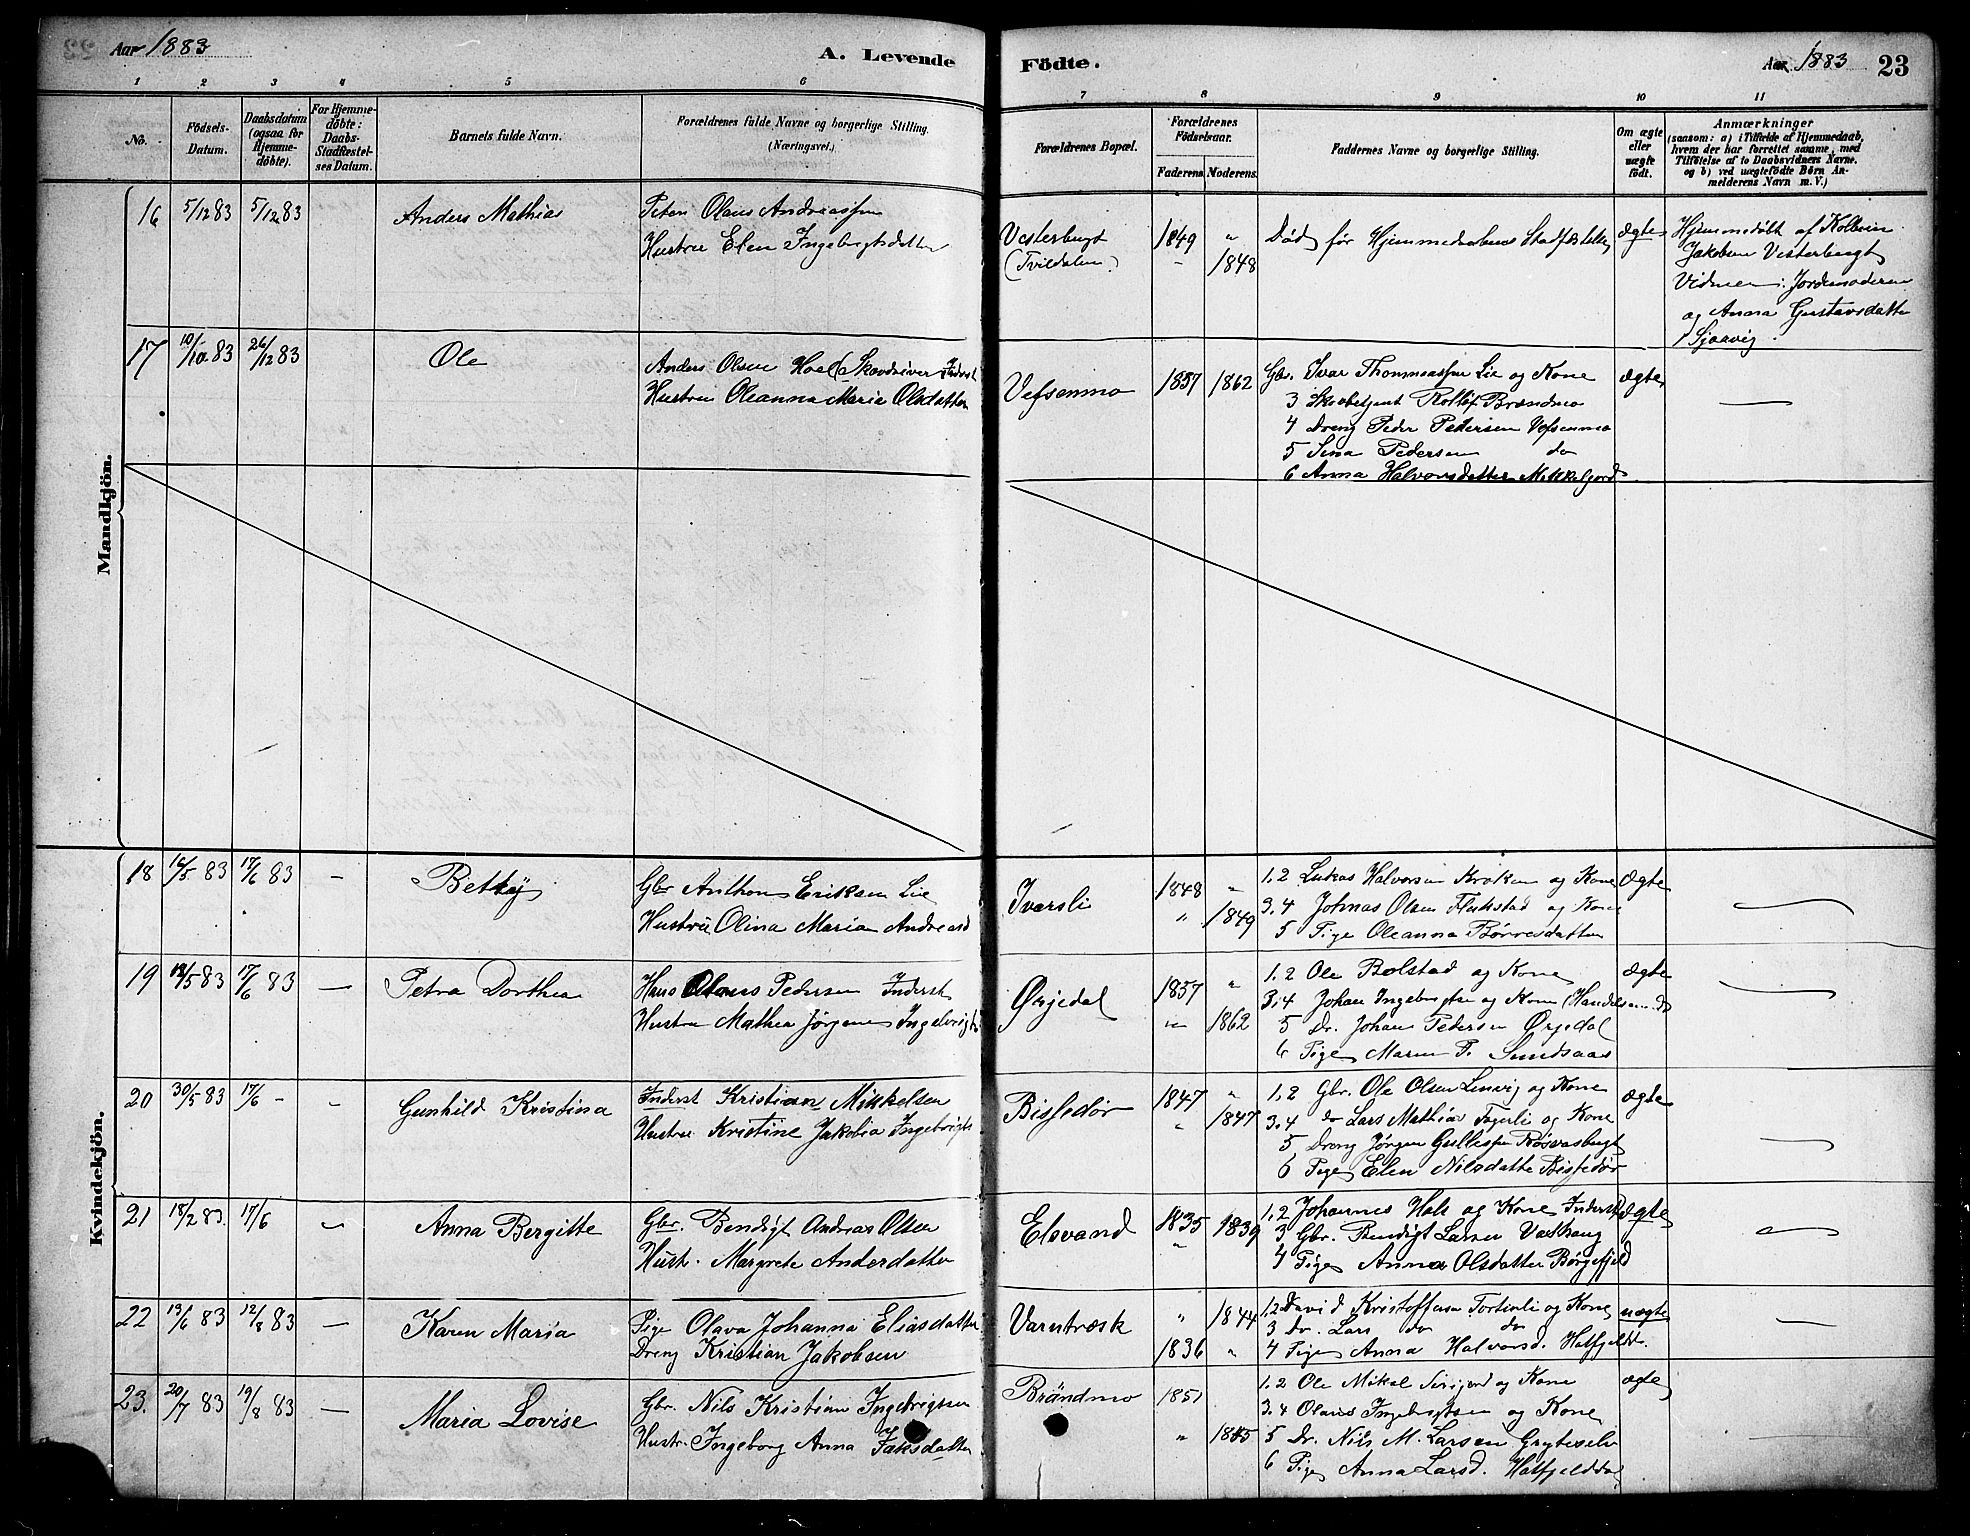 Aar 1883
A. Levende
Födte.
Aar 1883
23
1 2 3 4 5 6 7 8 9 10 11
No.
Födsels-
Datum.
Daabsdatum
(ogsaa for
Hjemme-
döbte).
For Hjemme-
döbte:
Daabs-
Stadfæstel-
ses Datum.
Barnets fulde Navn.
Forældrenes fulde Navne og borgerlige Stilling.
(Næringsvei.)
Forældrenes Bopæl.
Forældrenes
Födselsaar.
Faderens. Moderens.
Faddernes Navne og borgerlige Stilling.
Om ægte
eller
uægte
födt.
Anmærkninger
(saasom: a) i Tilfælde af Hjemmedaab,
hvem der har forrettet samme, med
Tilföielse af to Daabsvidners Navne.
og b) ved uægtefödte Börn An-
melderens Navn m. V.)
Mandkjön.
16 5/12 83 5/12 83 Anders Mathias
Peter Olaus Andreassen
Hustru Elen Ingebrigtsdatter
Vesterbugt
(Tvildalen)
1849 "
" 1848
Død før Hjemmedaabens Stadfæstelse
ægte
Hjemmedøbt af Kolbein
Jakobsen Vesterbugt
Vidner: Jordemoderen
og Anna Gustavsdatter
Sjaavig.
17 10/10 83 26/12 83 Ole
Anders Olsen Hoel (Skovdriver Inderst
Hustru Oleanna Maria Olsdatter
Vefsenmo 1857 1862
Gbr. Ivar Thommassen Lie og Kone
3 Skovbetjent Rolløf Brændmo
4 Dreng Peder Pedersen Vefsenmo
5 Sina Pedersen do
6 Anna Halvorsdatter Mikkeljord
ægte
Kvindekjön.
18 16/5 83 17/6 83 – Betty
Gbr Anthon Eriksen Lie
Hustru Olina Maria Andreasd
Iversli
1848 "
" 1849
1.2 Lukas Halvorsen Kroken og Kone
3.4 Johnas Olsen Flukstad og Kone
5 Pige Oleanna Børresdatter
Ægte
19 12/5 83 17/6 83 – Petra Dorthea
Hans Olaus Pedersen Inderst
Hustru Mathea Jørgene Ingebrigts
Ørjedal
1857 "
" 1862
1.2 Ole Bolstad og Kone
3.4 Johan Ingebrigtsen og Kone (Handelsmand
5 Dr. Johan Pedersen Ørjedal
6 Pige Maren P. Sundsaas
ægte
20 30/5 83 17/6 - – Gunhild Kristina
Inderst Kristian Mikkelsen
Hustru Kristine Jakobia Ingebrigts
Bisledør
1847 "
" 1847
1.2 Gbr. Ole Olsen Lenvig og Kone
3.4 do Lars Mathias Fagerli og Kone
5 Dreng Jørgen Gullesen Røsvasbugt
6 Pige Elen Nilsdatter Bisledør
ægte
21 18/2 83. 17/6 – Anna Bergitte
Gbr. Bendigt Andreas Olsen
Hust. Margrete Andersdatter
Elsvand
1835 1839
"
1.2 Johannes Hols og Kone Inderst
3 Gbr. Bendigt Larsen
4 Pige Anna Olsdatter Børgefjeld
ægte
22 13/6 83 12/8 83 – Karen Maria
Pige Olava Johanna Eliasdatter
Dreng Kristian Jakobsen
Varntræsk
" 1844
1836 "
1.2 David Kristoffersen Tortenli og Kone
3 Dr. Lars do do
4 Pige Anna Halvorsd. Hatfjeldd.
uægte
23. 20/7 83 19/8 83 – Maria Lovise
Gbr. Nils Kristian Ingebrigtsen
Hustr. Ingeborg Anna Jaksdatter
Brändmo 1851
" 1855
1.2 Ole Mikal Sirijord og Kone
3.4 Olaus Ingebrigtsen og Kone
5 Dr. Nils M. Larsen Gryteselv
6 Pige Anna Larsd. Hatfjelddal
ægte